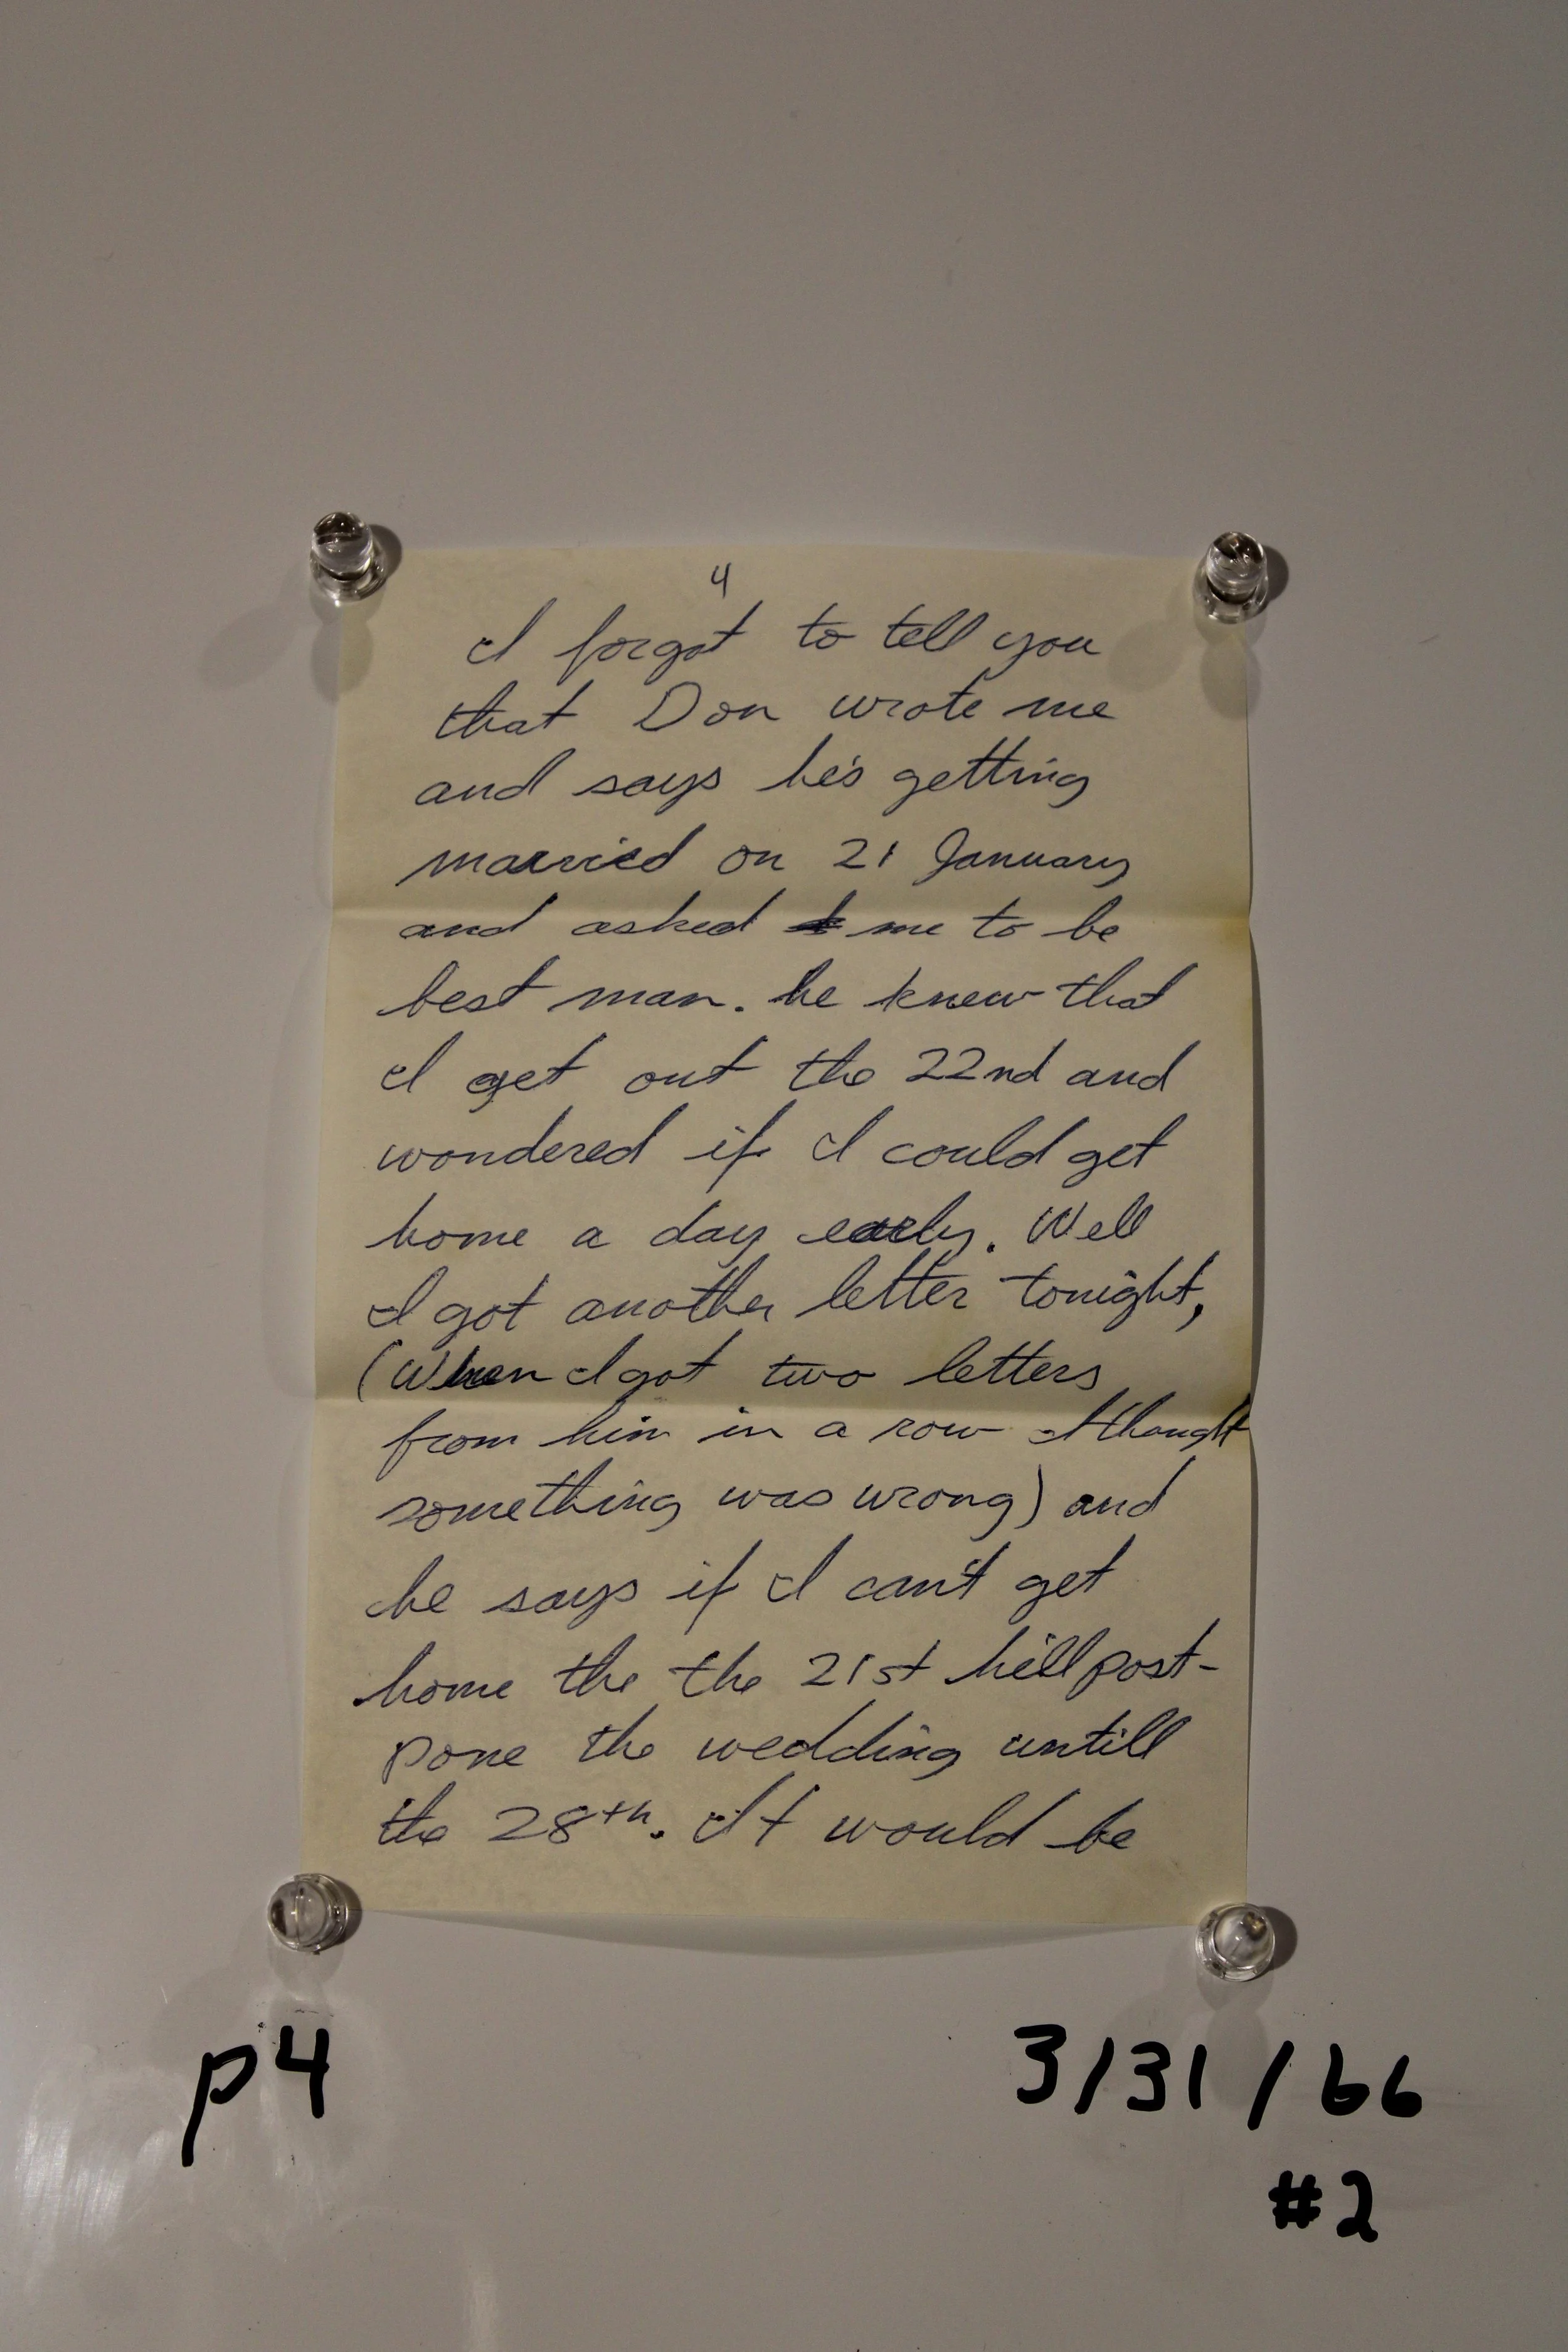 4
I forgot to tell you
that Don wrote me
and says he's getting
married on 21 January
and asked me to be
best man. he knew that
I get out the 22nd and
wondered if I could get
home a day early. Well
I got another letter tonight,
(When I got two letters
from him in a row I thought
something was wrong) and
he says if I can't get
home the the 21st he'll post-
pone the wedding untill
the 28th. It would be
p4
3/31/66
#2